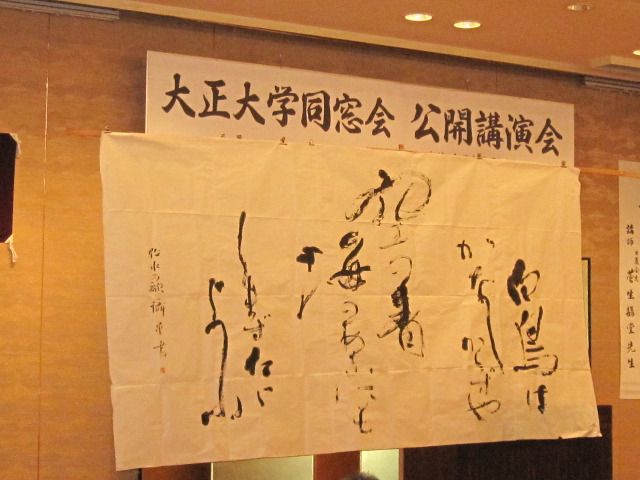 大正大学同窓会 公開講演会
白鳥は
かなしからずや
空の青
海のあをにも
まずただ
よふ
牧水の歌
書
講師
先生